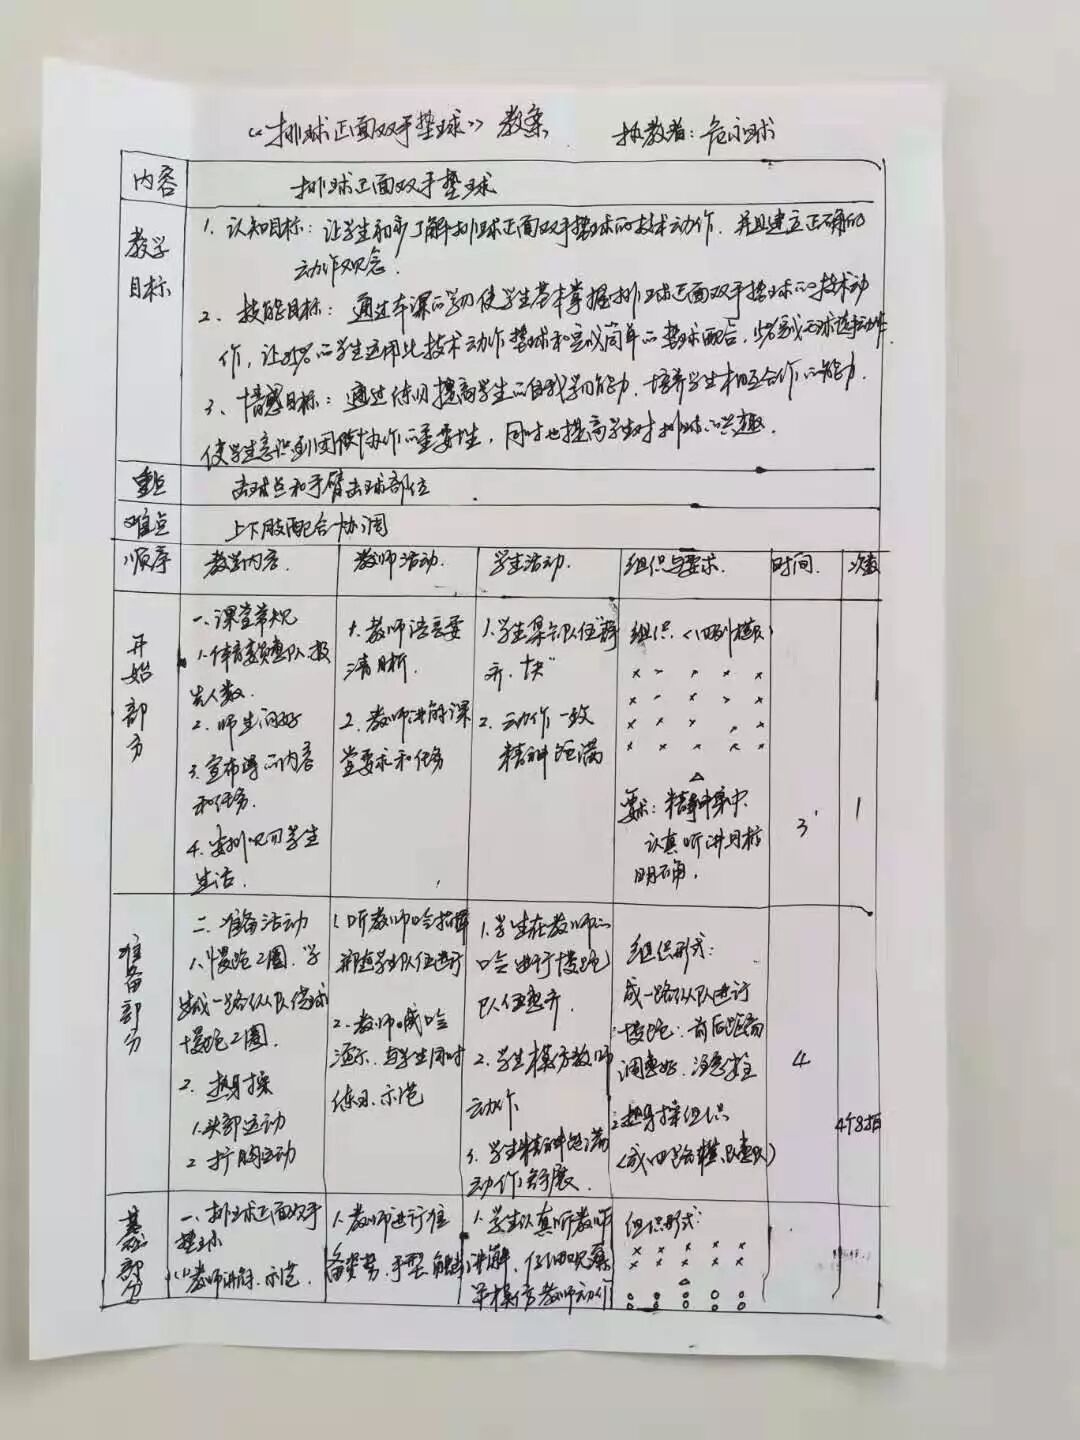 《排球正面双手垫球》教案 执教者：危永球
内容 排球正面双手垫球
教学目标
1、认知目标：让学生初步了解排球正面双手垫球的技术动作，并且建立正确的
动作观念.
2、技能目标：通过本课的学习使学生基本掌握排球正面双手垫球的技术动
作，让 的学生运用此技术动作垫球和完成简单的垫球配合，
3、情感目标：通过练习提高学生的自我学习能力，培养学生相互合作的能力.
使学生意识到团体协作的重要性，同时也提高学生对排球的兴趣.
重点 击球点和手臂击球部位
难点 上下肢配合协调
顺序 教学内容. 教师活动. 学生活动. 组织与要求. 时间. 次数
开始部分
一、课堂常规
1.体育委员整队、报
告人数.
2.师生问好
3.宣布课的内容
和任务.
4.安排见习学生
生活.
1.教师语言要
清晰.
2.教师讲解课
堂要求和任务
1.学生集合队伍整
齐、快
2.动作一致
精神饱满
组织（四列横队）
要求：精神集中.
认真听讲目标
明确.
3'
1
准备部分
二、准备活动
1.慢跑2圈、学
生成一路纵队绕球
慢跑2圈.
2.热身操
1.头部运动
2 扩胸运动
1.听教师口令指挥
并随学生队伍进行
2.教师喊口令
演示、与学生同时
练习、示范
1.学生在教师的
口令进行慢跑
队伍整齐
2.学生模仿教师
动作
3.学生精神饱满
动作舒展.
组织形式：
成一路纵队进行
慢跑：前后距离
调整好、注意安全
2热身操组织
4
4个8拍
基本部分
一、排球正面双手
垫球
(1)教师讲解、示范.
1.教师进行准
备姿势、手型、触球
1.学生认真听教师
讲解、仔细观察
并模仿教师动作
组织形式：